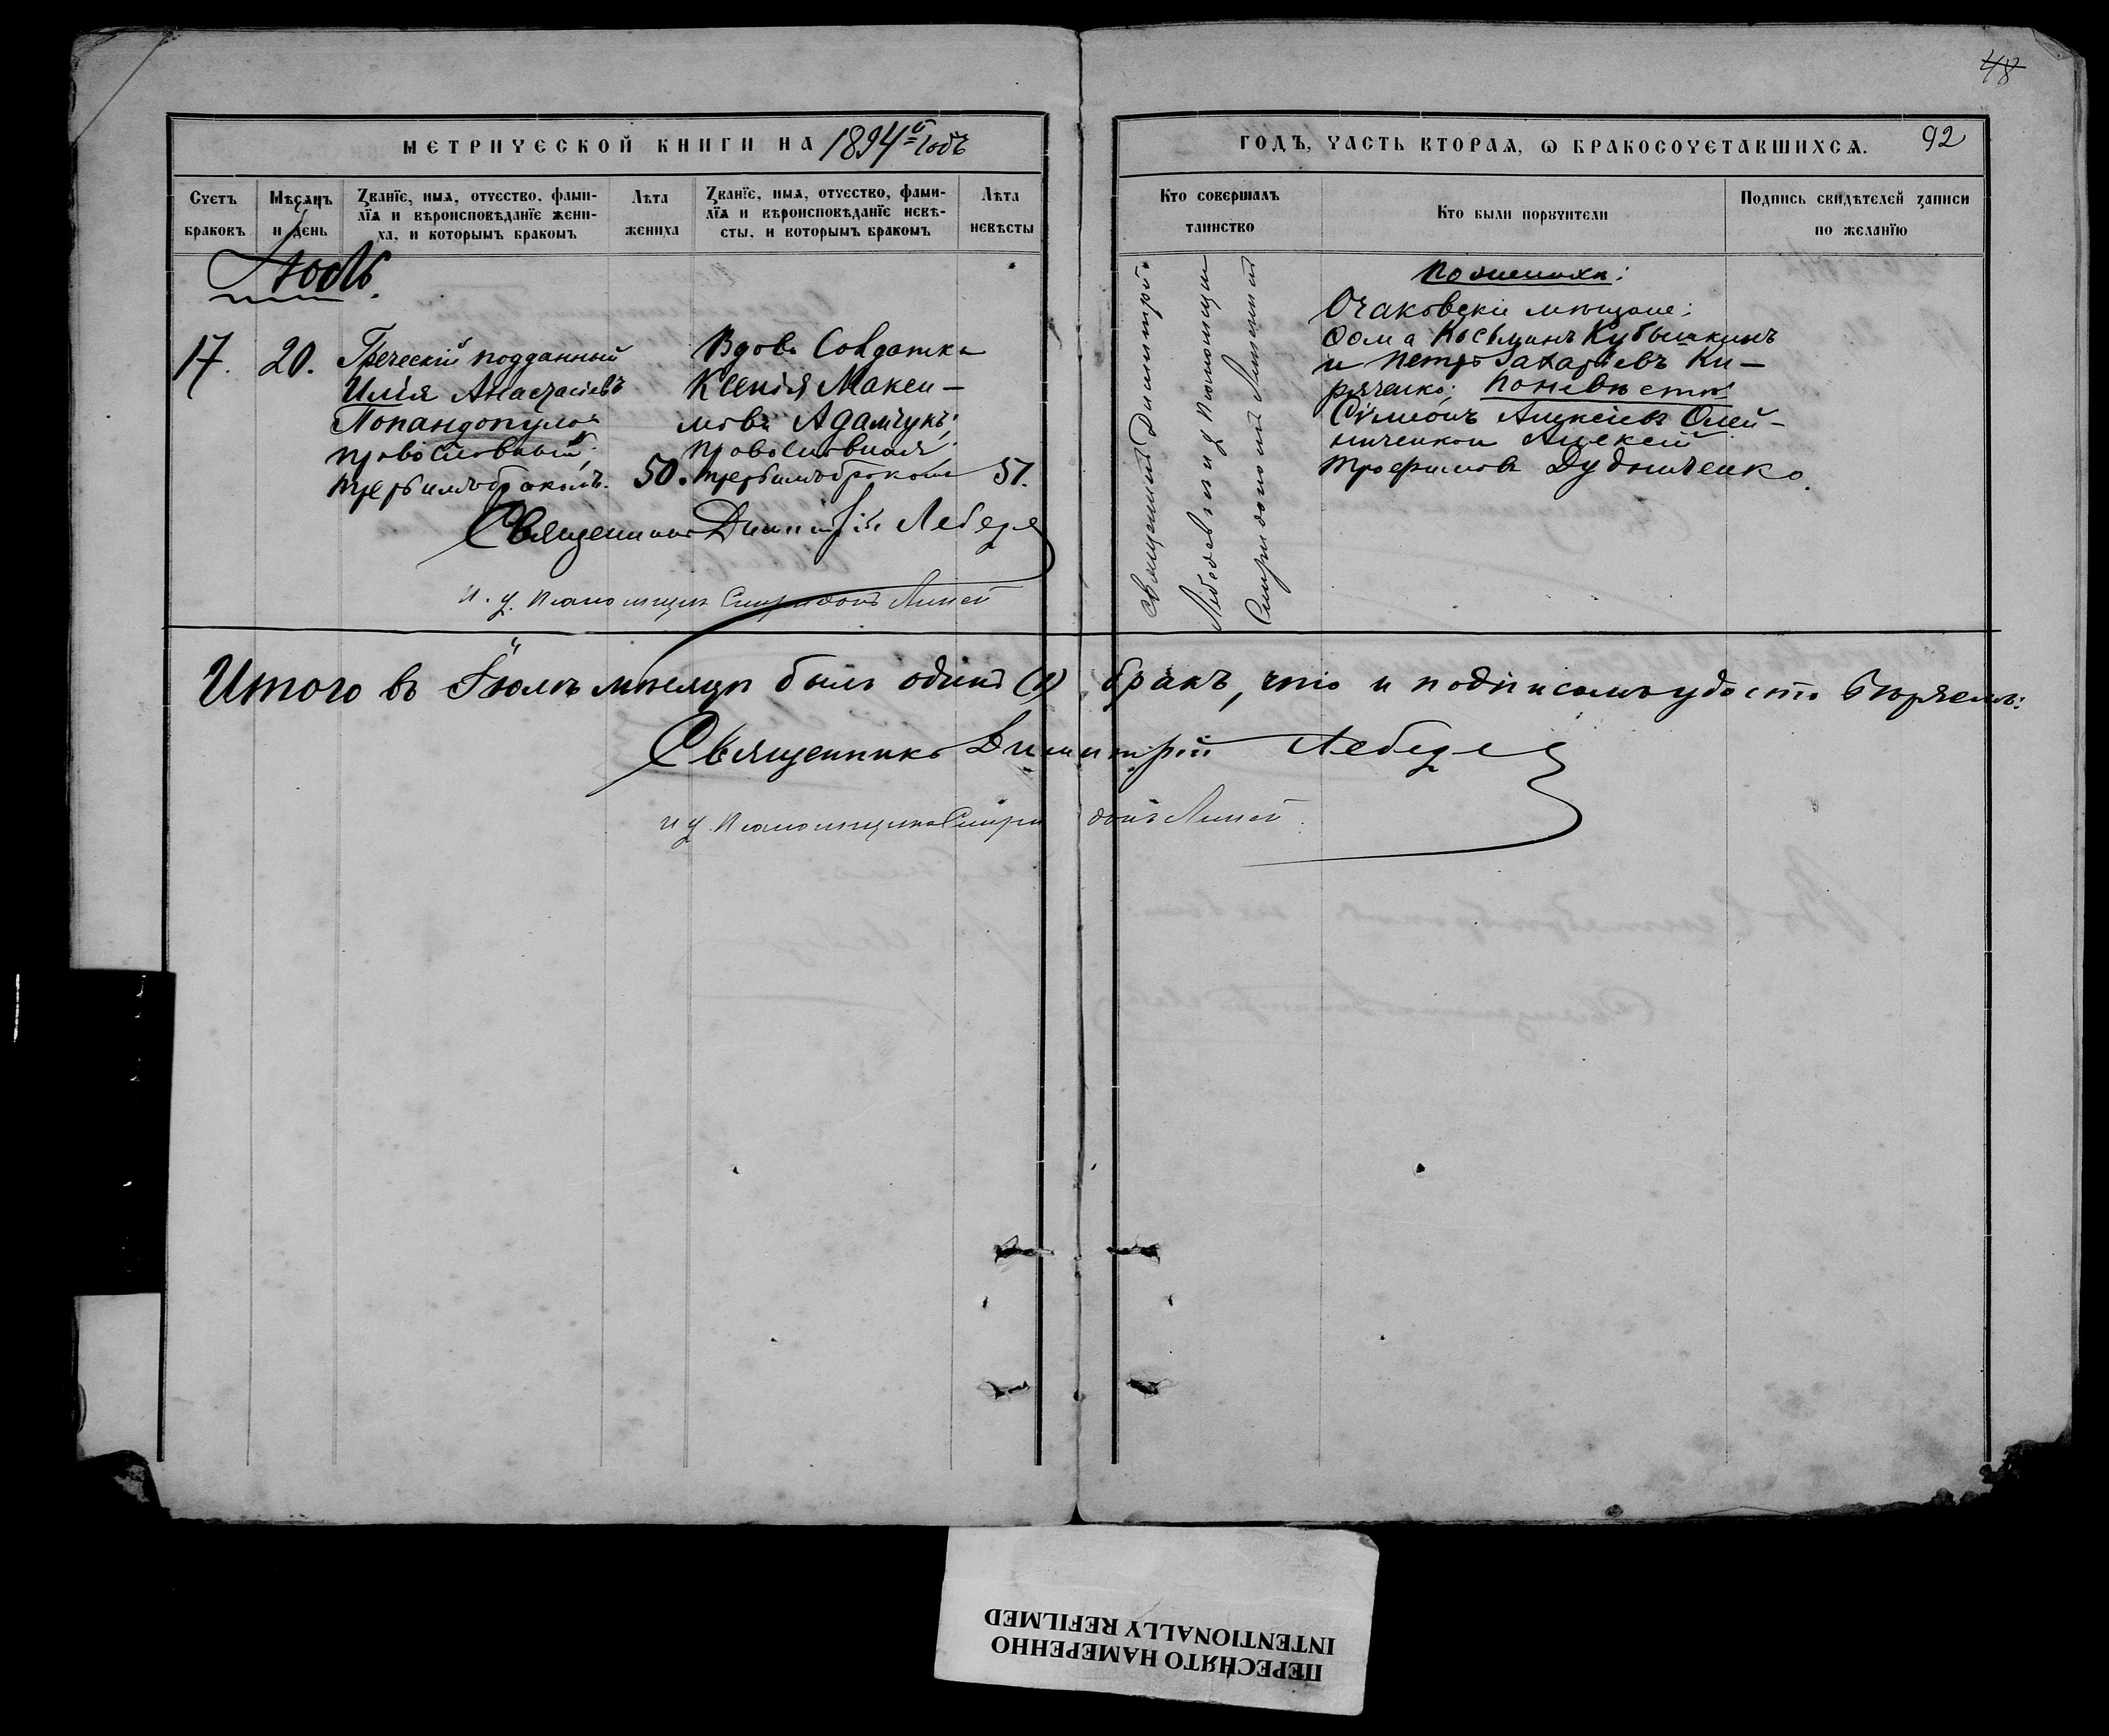 48
МЕТРИЧЕСКОЙ КНИГИ НА 1894й годъ
ГОДЪ, ЧАСТЬ ВТОРАЯ, Ѡ БРАКОСОЧЕТАВШИХСЯ. 92
Счетъ браковъ
Мѣсяцъ и день
Званіе, имя, отчество, фами-
лія и вѣроисповѣданіе жени-
ха, и которымъ бракомъ
Лѣта жениха
Званіе, имя, отчество, фами-
лія и вѣроисповѣданіе невѣ-
сты, и которымъ бракомъ
Лѣта невѣсты
Кто совершалъ таинство
Кто были поручители
Подпись свидѣтелей записи по желанію
Іюль.
17. 20.
Греческій подданный
Илія Анастасіевъ
Попандопуло
православный;
третьимъ бракомъ. 50.
Вдова Солдатка
Ксенія Макси-
мова Адамчукъ;
православная;
третьимъ бракомъ 51.
Священникъ Димитрій Лебедев
и. д. псаломщика Спиридонъ Линей
Священникъ Димитрій
Лебедевъ и и д псаломщика
Спиридоній
По женихѣ:
Очаковскіе мѣщане:
Ѳома Косьминъ Кубышкинъ
и Петръ Захаріевъ Ки-
риченко; по невѣстѣ
Сѷмеонъ Алексіевъ Олей-
ниченко и Алексій
Трофимовъ Дудниченко.
Итого въ Іюлѣ мѣсяцѣ былъ одинъ (1) бракъ, что и подписомъ удостовѣряемъ:
Священникъ Димитрій Лебедев
и д псаломщика Спиридонъ Линей
ПЕРЕСНЯТО НАМЕРЕННО
INTENTIONALLY REFILMED